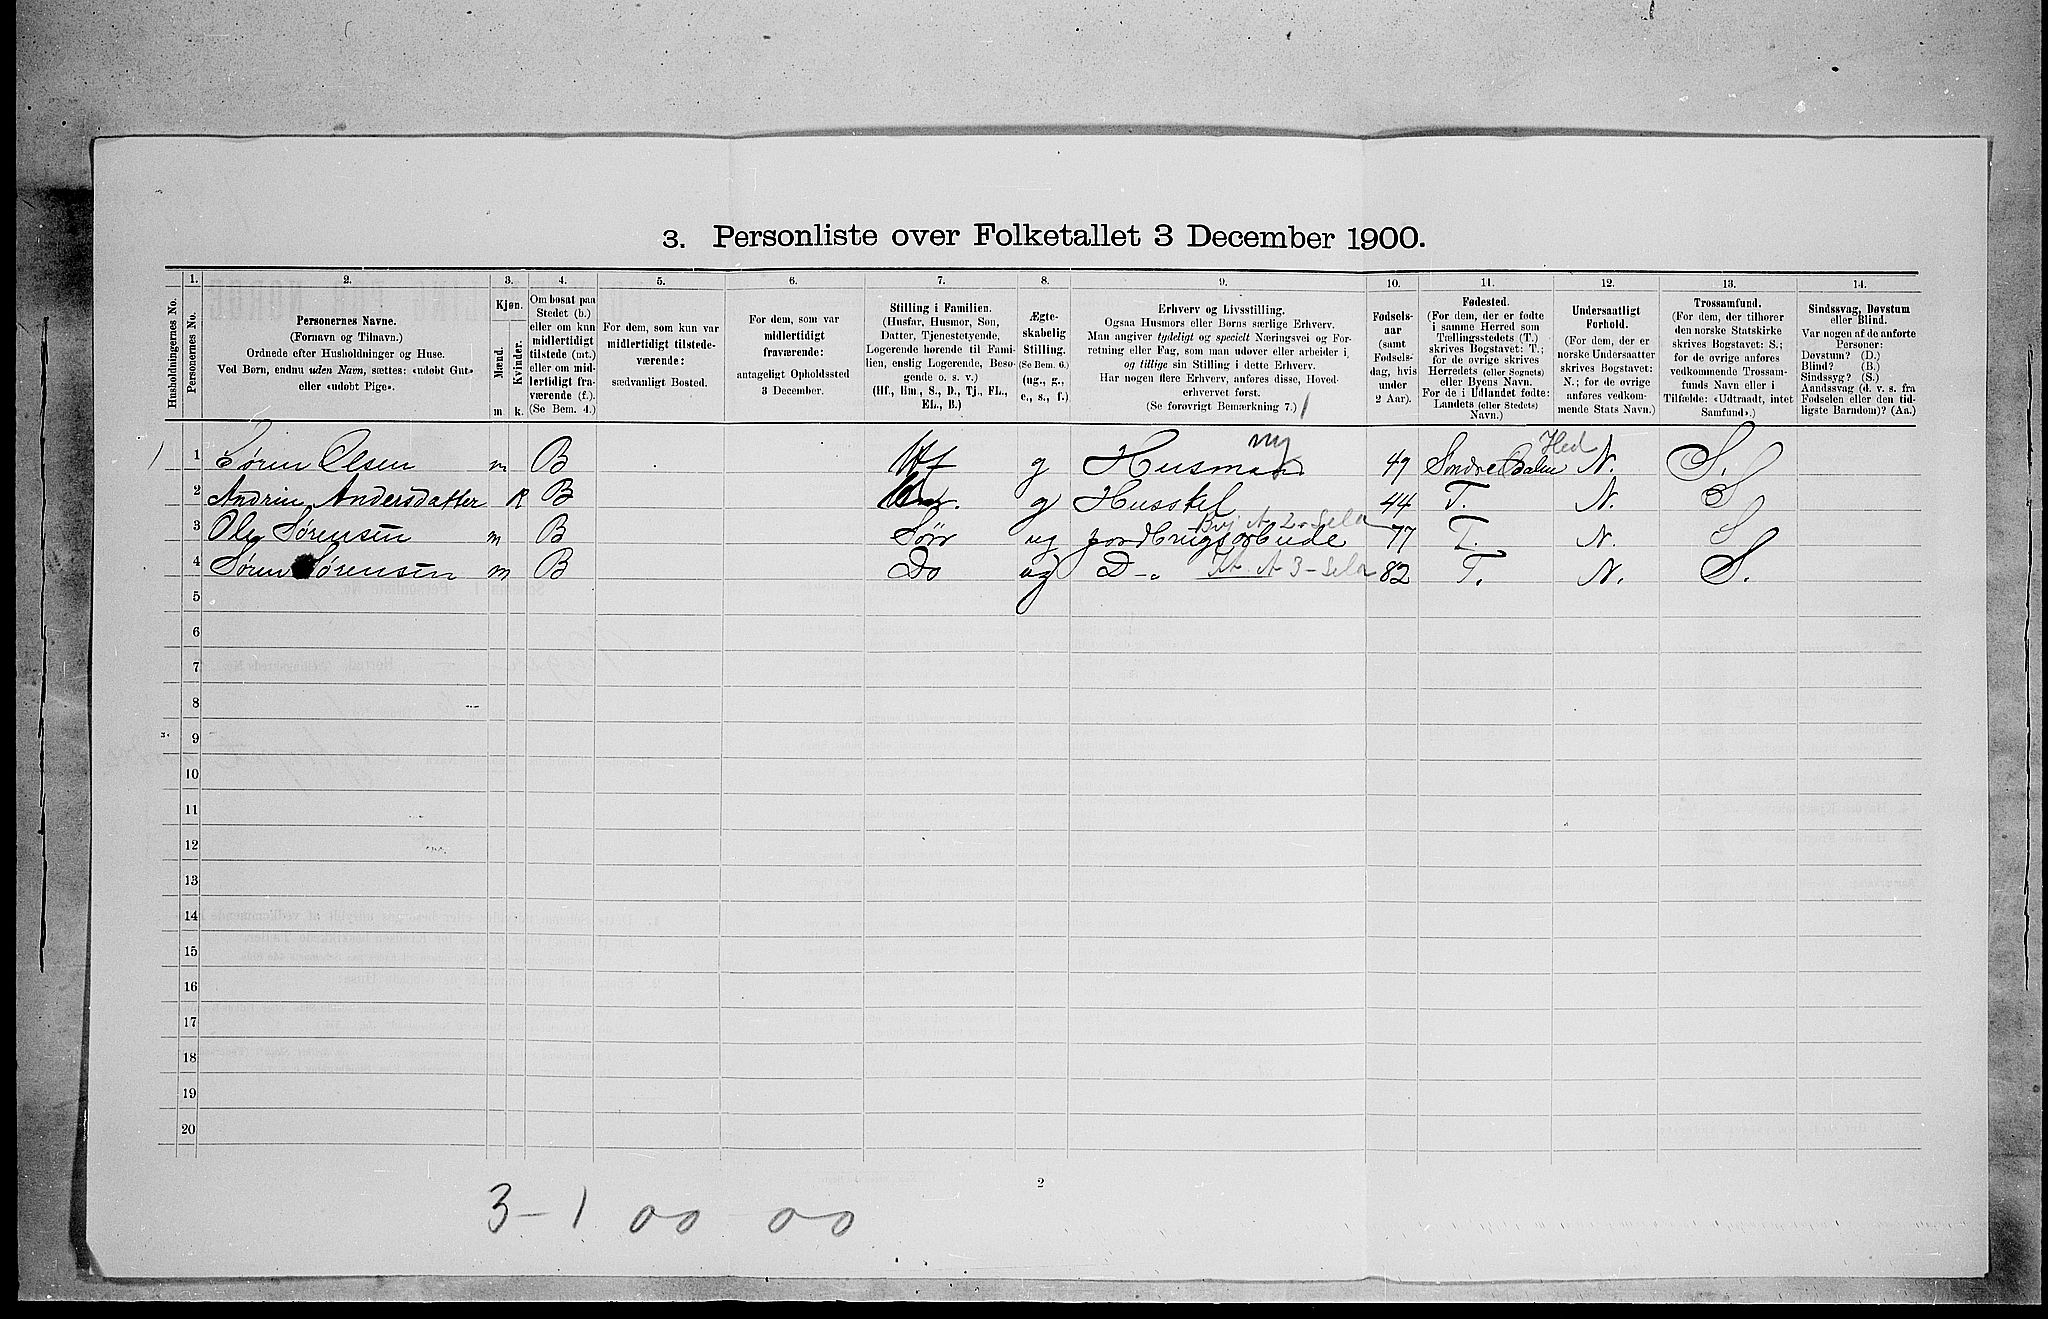 3. Personliste over Folketallet 3 December 1900.
1. 2. 3. 4. 5. 6. 7. 8. 9. 10. 11. 12. 13. 14.
Husholdningernes No.
Personernes No.
Personernes Navne.
(Fornavn og Tilnavn.)
Ordnede efter Husholdninger og Huse.
Ved Børn, endnu uden Navn, sættes: «udobt Gut»
eller «udobt Pige».
Kjøn.
Mænd.
Kvinder.
m k.
Om bosat paa
Stedet (b.)
eller om kun
midlertidigt
tilstede (mt.)
eller om mid-
lertidigt fra-
værende (f.).
(Se Bem. 4.)
For dem, som kun var
midlertidigt tilstede-
værende:
sædvanligt Bosted.
For dem, som var
midlertidigt
fraværende:
antageligt Opholdssted
3 December.
Stilling i Familien.
(Husfar, Husmor, Søn,
Datter, Tjenestetyende,
Logerende hørende til Fami-
lien, enslig Logerende, Besø-
gende o. s. v.)
(Hf, Hm, S., D., Tj., FL.,
EL., B.)
Ægte-
skabelig
Stilling.
(Se Bem. 6.)
(ug., g.,
e., s., f.)
Erhverv og Livsstilling.
Ogsaa Husmors eller Børns særlige Erhverv.
Man angiver tydeligt og specielt Næringsvei og For-
retning eller Fag, som man udøver eller arbeider i,
og tillige sin Stilling i dette Erhverv.
Har nogen flere Erhverv, anføres disse, Hoved-
erhvervet først.
(Se forøvrigt Bemærkning 7.)
Fødsels-
aar
(samt
Fødsels-
dag, hvis
under
2 Aar).
Fødested.
(For dem, der er fødte
i samme Herred som
Tællingsstedets (T.)
skrives Bogstavet: T.;
for de øvrige skrives
Herredets (eller Sognets)
eller Byens Navn.
For de i Udlandet fødte:
Landets (eller Stedets)
Navn.)
Undersaatligt
Forhold.
(For dem, der er
norske Undersaatter
skrives Bogstavet:
N.; for de øvrige
anføres vedkom-
mende Stats Navn.)
Trossamfund.
(For dem, der tilhører
den norske Statskirke
skrives Bogstavet: S.;
for de øvrige anføres
vedkommende Trossam-
funds Navn eller i
Tilfælde: «Udtraadt, intet
Samfund».)
Sindssvag, Døvstum
eller Blind.
Var nogen af de anførte
Personer:
Døvstum? (D.)
Blind? (B.)
Sindssyg? (S.)
Aandssvag (d. v. s. fra
Fødselen eller den tid-
ligste Barndom)? (Aa.)
1 1 Søren Olsen m B Hf g Husmand 49 Søndre Odalen Hed N. S.
2 Andrine Andersdatter K B Hm. g Husstel 44 T. N. S
3 Ole Sørensen m B Søn ug jordbrugsarbeide 77 T. N. S
4 Søren Sørensen m B Do ug D-" 82 T. N. S.
5
6
7
8
9
10
11
12
13
14
15
16
17
18
19
20
2
3-1 00-00